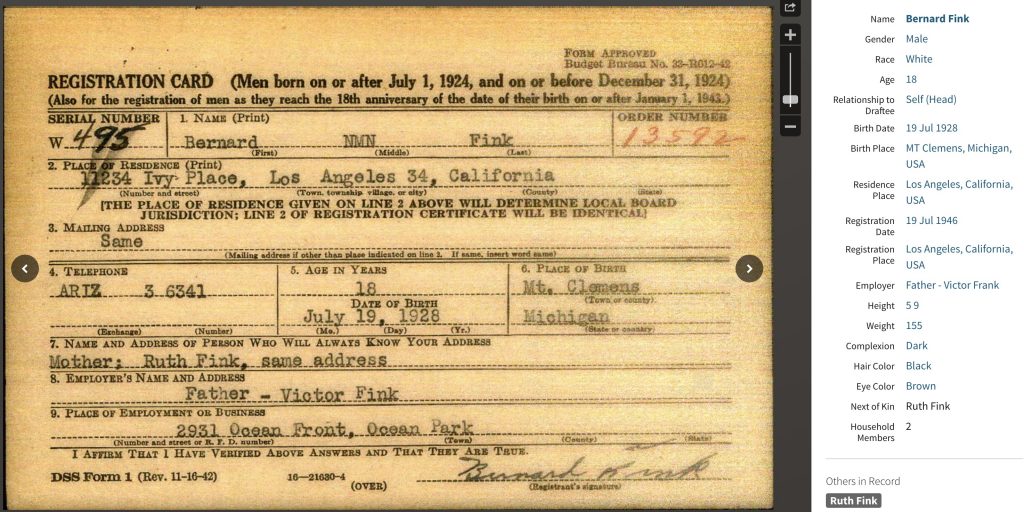 FORM APPROVED
Budget Bureau No. 33-R012-42
REGISTRATION CARD (Men born on or after July 1, 1924, and on or before December 31, 1924)
(Also for the registration of men as they reach the 18th anniversary of the date of their birth on or after January 1, 1943.)
SERIAL NUMBER 1. NAME (Print) ORDER NUMBER
W 495 Bernard NMN Fink 13592
(First) (Middle) (Last)
2. PLACE OF RESIDENCE (Print)
11234 Ivy Place, Los Angeles 34, California
(Number and street) (Town, township village, or city) (County) (State)
[THE PLACE OF RESIDENCE GIVEN ON LINE 2 ABOVE WILL DETERMINE LOCAL BOARD
JURISDICTION; LINE 2 OF REGISTRATION CERTIFICATE WILL BE IDENTICAL]
3. MAILING ADDRESS
Same
(Mailing address if other than place indicated on line 2. If same, insert word same)
4. TELEPHONE 5. AGE IN YEARS 6. PLACE OF BIRTH
ARIZ 3 6341 18 Mt. Clemens
DATE OF BIRTH (Town or county)
July 19, 1928 Michigan
(Exchange) (Number) (Mo.) (Day) (Yr.) (State or country)
7. NAME AND ADDRESS OF PERSON WHO WILL ALWAYS KNOW YOUR ADDRESS
Mother; Ruth Fink, same address
8. EMPLOYER'S NAME AND ADDRESS
Father - Victor Fink
9. PLACE OF EMPLOYMENT OR BUSINESS
2931 Ocean Front, Ocean Park
(Number and street or R. F. D. number) (Town) (County) (State)
I AFFIRM THAT I HAVE VERIFIED ABOVE ANSWERS AND THAT THEY ARE TRUE.
DSS Form 1 (Rev. 11-16-42) 16—21630-4 Bernard Fink
(OVER) (Registrant's signature)
Name Bernard Fink
Gender Male
Race White
Age 18
Relationship to Draftee Self (Head)
Birth Date 19 Jul 1928
Birth Place MT Clemens, Michigan,
USA
Residence Place Los Angeles, California,
USA
Registration Date 19 Jul 1946
Registration Place Los Angeles, California,
USA
Employer Father - Victor Frank
Height 5 9
Weight 155
Complexion Dark
Hair Color Black
Eye Color Brown
Next of Kin Ruth Fink
Household Members 2
Others in Record
Ruth Fink